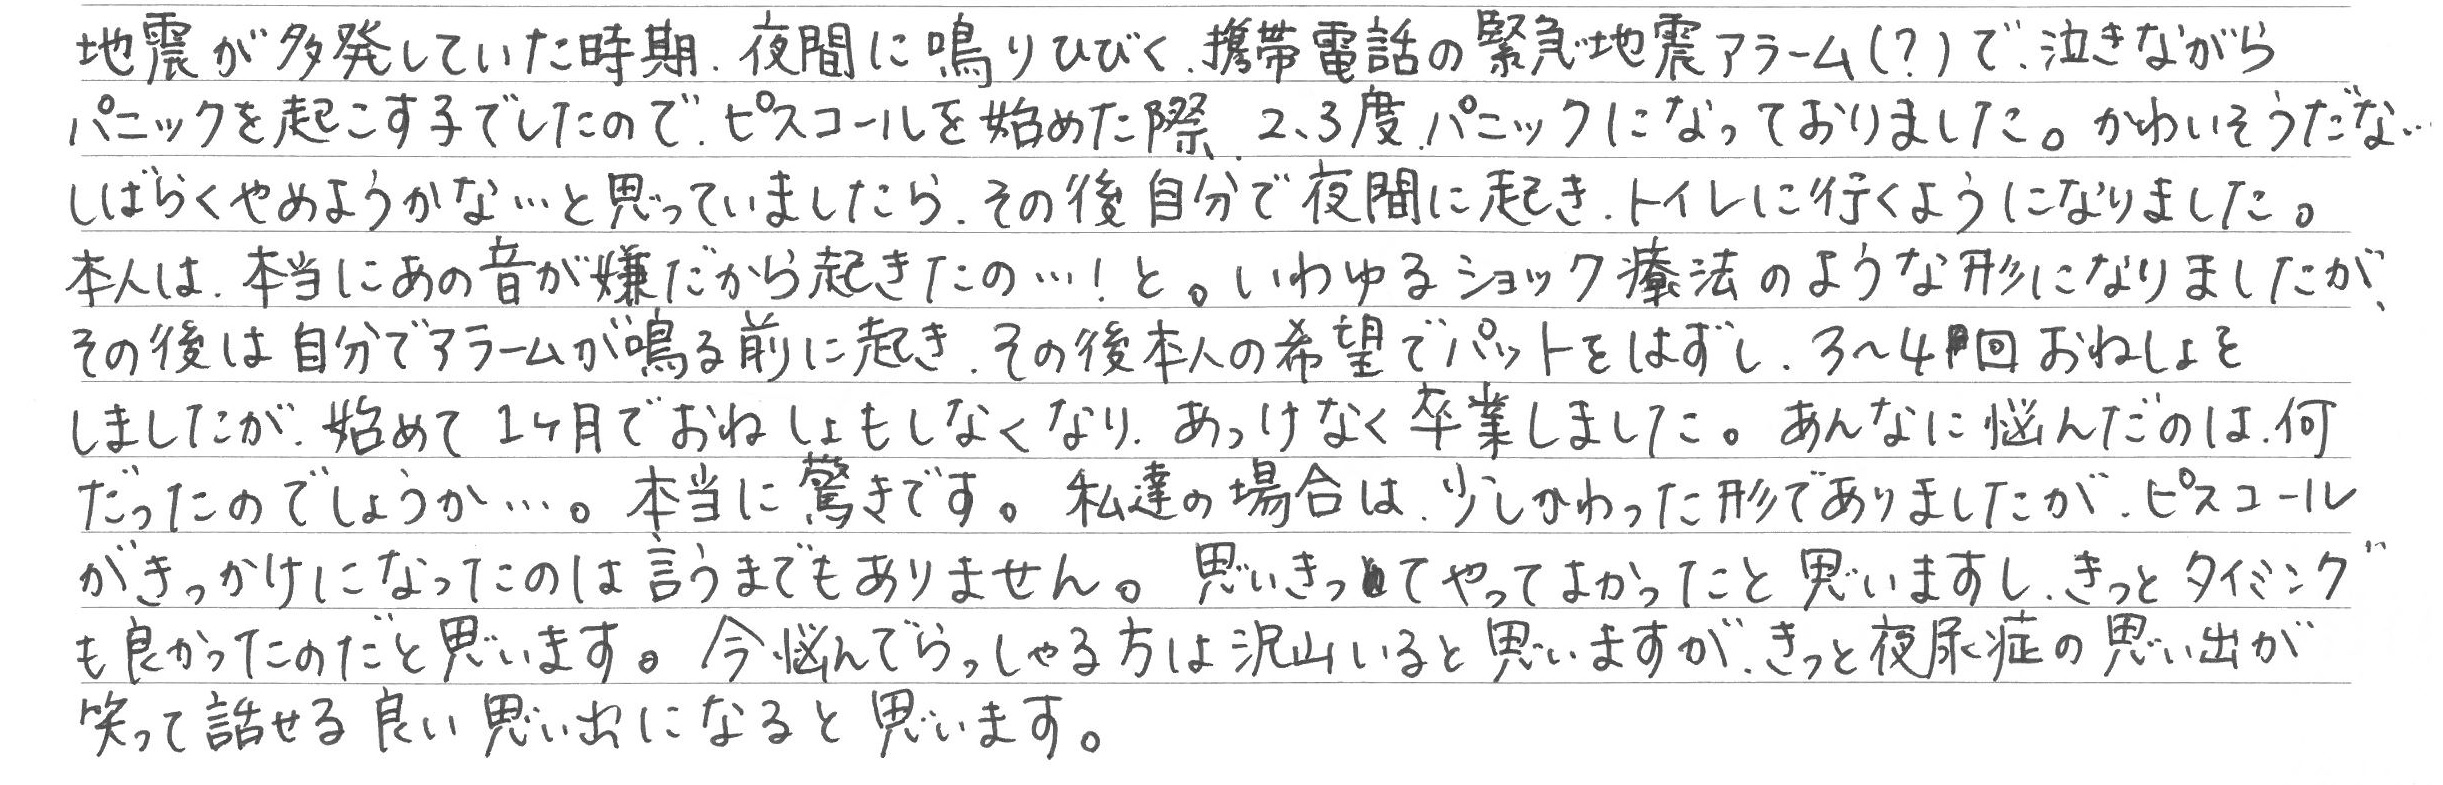 地震が多発していた時期、夜間に鳴りひびく、携帯電話の緊急地震アラーム(?)で、泣きながら
パニックを起こす子でしたので、ピスコールを始めた際、2、3度、パニックになっておりました。かわいそうだな…
しばらくやめようかな…と思っていましたら、その後自分で夜間に起き、トイレに行くようになりました。
本人は、本当にあの音が嫌だから起きたの…!と。いわゆるショック療法のような形になりましたが、
その後は自分でアラームが鳴る前に起き、その後本人の希望でパットをはずし、3〜4回おねしょを
しましたが、始めて1ヶ月でおねしょもしなくなり、あっけなく卒業しました。あんなに悩んだのは、何
だったのでしょうか…。本当に驚きです。私達の場合は、少しかわった形でありましたが、ピスコール
がきっかけになったのは言うまでもありません。思いきってやってよかったと思いますし、きっとタイミング
も良かったのだと思います。今悩んでらっしゃる方は沢山いると思いますが、きっと夜尿症の思い出が
笑って話せる良い思い出になると思います。